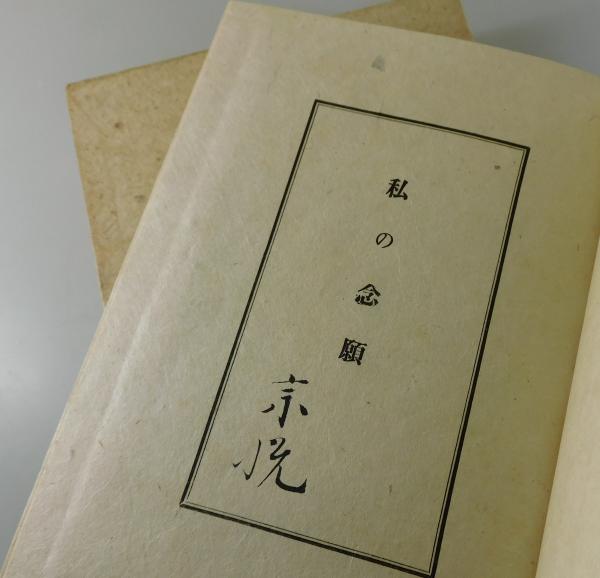 私の念願
宗悦